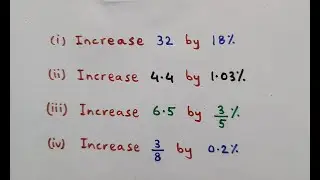 (i) Increase 32 by 18%
(ii) Increase 4.4 by 1.03%
(iii) Increase 6.5 by 3/5 %
(iv) Increase 3/8 by 0.2%